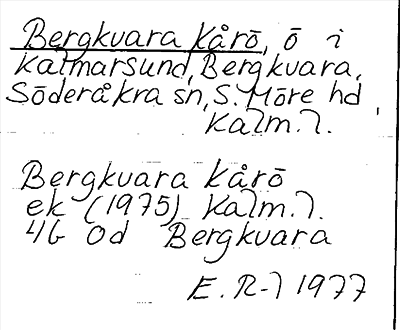 Bergkvara Kårö, ö i
Kalmarsund, Bergkvara,
Söderåkra sn, S. Möre hd,
Kalm. l.
Bergkvara Kårö
ek (1975) Kalm. l.
4G 0d Bergkvara
E. R-l 1977